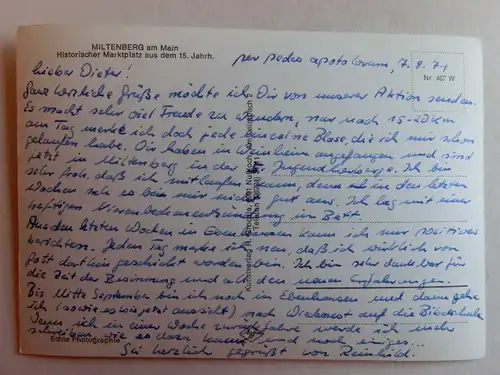 MILTENBERG am Main
Historischer Marktplatz aus dem 15. Jahrh.
per pedes apostolorum, 7.8.71
Nr. 467 W
Lieber Dieter!
Ganz herzliche Grüße möchte ich Dir von unserer Aktion senden.
Es macht sehr viel Freude zu wandern, nur nach 15-20 km
am Tag merke ich doch jede einzelne Blase, die ich mir schon
gelaufen habe. Wir haben in Weinheim angefangen und sind
jetzt in Miltenberg in der Jugendherberge. Ich bin
sehr froh, daß ich mitlaufen kann, denn in den letzten
Wochen es mir nicht gut. Ich lag mit einer
heftigen Nierenbeckenentzündung im Bett.
Aus den letzten Wochen in Ebenhausen kann ich nur positives
berichten. Jeden Tag merke ich neu, daß ich wirklich von
Gott dorthin geschickt worden bin. Ich bin sehr dankbar für
die Zeit der Besinnung und all den neuen Erfahrungen.
Bis Mitte September bin ich noch in Ebenhausen und dann gehe
ich (sowie es wie jetzt aussieht) nach auf die
Wenn ich in einer Woche zurückfahre werde ich mehr
schreiben, wie es dazu kam und noch einiges...
Sei herzlich gegrüßt von Reinhild.
Echte Photographie
Kunstverlag
Telefon